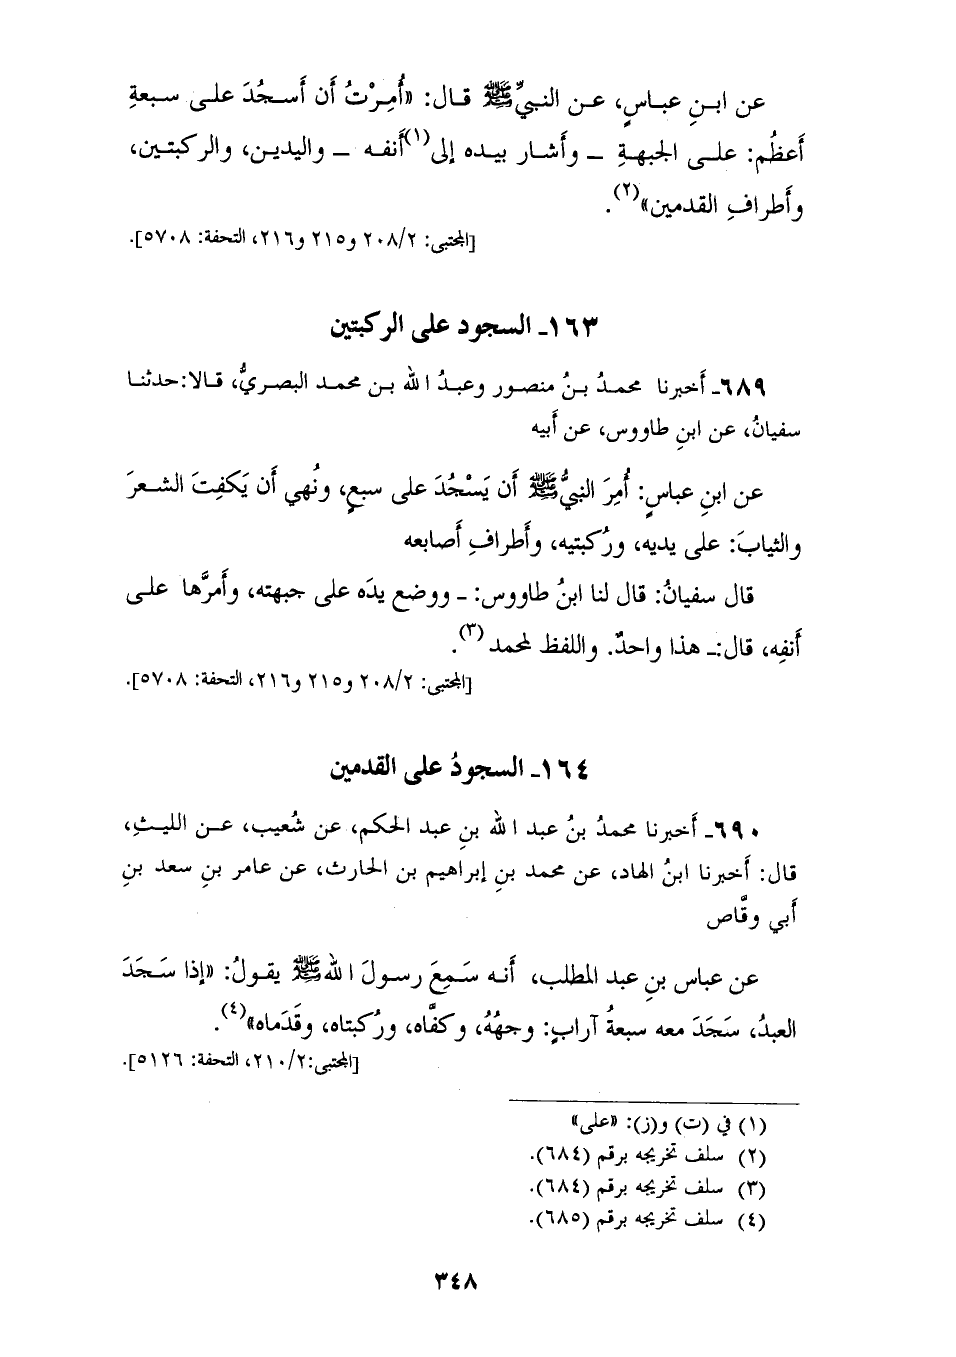 عن ابنِ عباسٍ، عن النبيِّ ﷺ قال: «أُمِرْتُ أن أَسجُدَ على سبعةِ
أَعظُم: على الجبهةِ ــ وأَشار بيده إلى(١) أَنفه ــ واليدين، والركبتين،
وأَطرافِ القدمين»(٢).
[المجتبى: ٢٠٨/٢ و٢١٥ و٢١٦، التحفة: ٥٧٠٨].
١٦٣ـ السجود على الركبتين
٦٨٩ـ أَخبرنا محمدُ بنُ منصور وعبدُ الله بن محمد البصريُّ، قالا: حدثنا
سفيانُ، عن ابنِ طاووس، عن أَبيه
عن ابنِ عباسٍ: أُمِرَ النبيُّ ﷺ أَن يَسْجُدَ على سبعٍ، ونُهي أَن يَكفِتَ الشعرَ
والثيابَ: على يديه، ورُكبتيه، وأَطرافِ أَصابعه
قال سفيانُ: قال لنا ابنُ طاووس: ــ ووضع يدَه على جبهته، وأَمرَّها على
أَنفِه، قال:ــ هذا واحدٌ. واللفظ لمحمد(٣).
[المجتبى: ٢٠٨/٢ و٢١٥ و٢١٦، التحفة: ٥٧٠٨].
١٦٤ـ السجودُ على القدمين
٦٩٠ـ أَخبرنا محمدُ بنُ عبد الله بنِ عبد الحكم، عن شُعيب، عن الليثِ،
قال: أَخبرنا ابنُ الهاد، عن محمد بنِ إبراهيم بن الحارث، عن عامر بنِ سعد بنِ
أَبي وقَّاص
عن عباس بنِ عبد المطلب، أَنه سَمِعَ رسولَ الله ﷺ يقولُ: «إذا سَجَدَ
العبدُ، سَجَدَ معه سبعةُ آرابٍ: وجهُهُ، وكفَّاه، ورُكبتاه، وقَدَماه»(٤).
[المجتبى:٢١٠/٢، التحفة: ٥١٢٦].
(١) في (ت) و(ز): «على»
(٢) سلف تخريجه برقم (٦٨٤).
(٣) سلف تخريجه برقم (٦٨٤).
(٤) سلف تخريجه برقم (٦٨٥).
٣٤٨